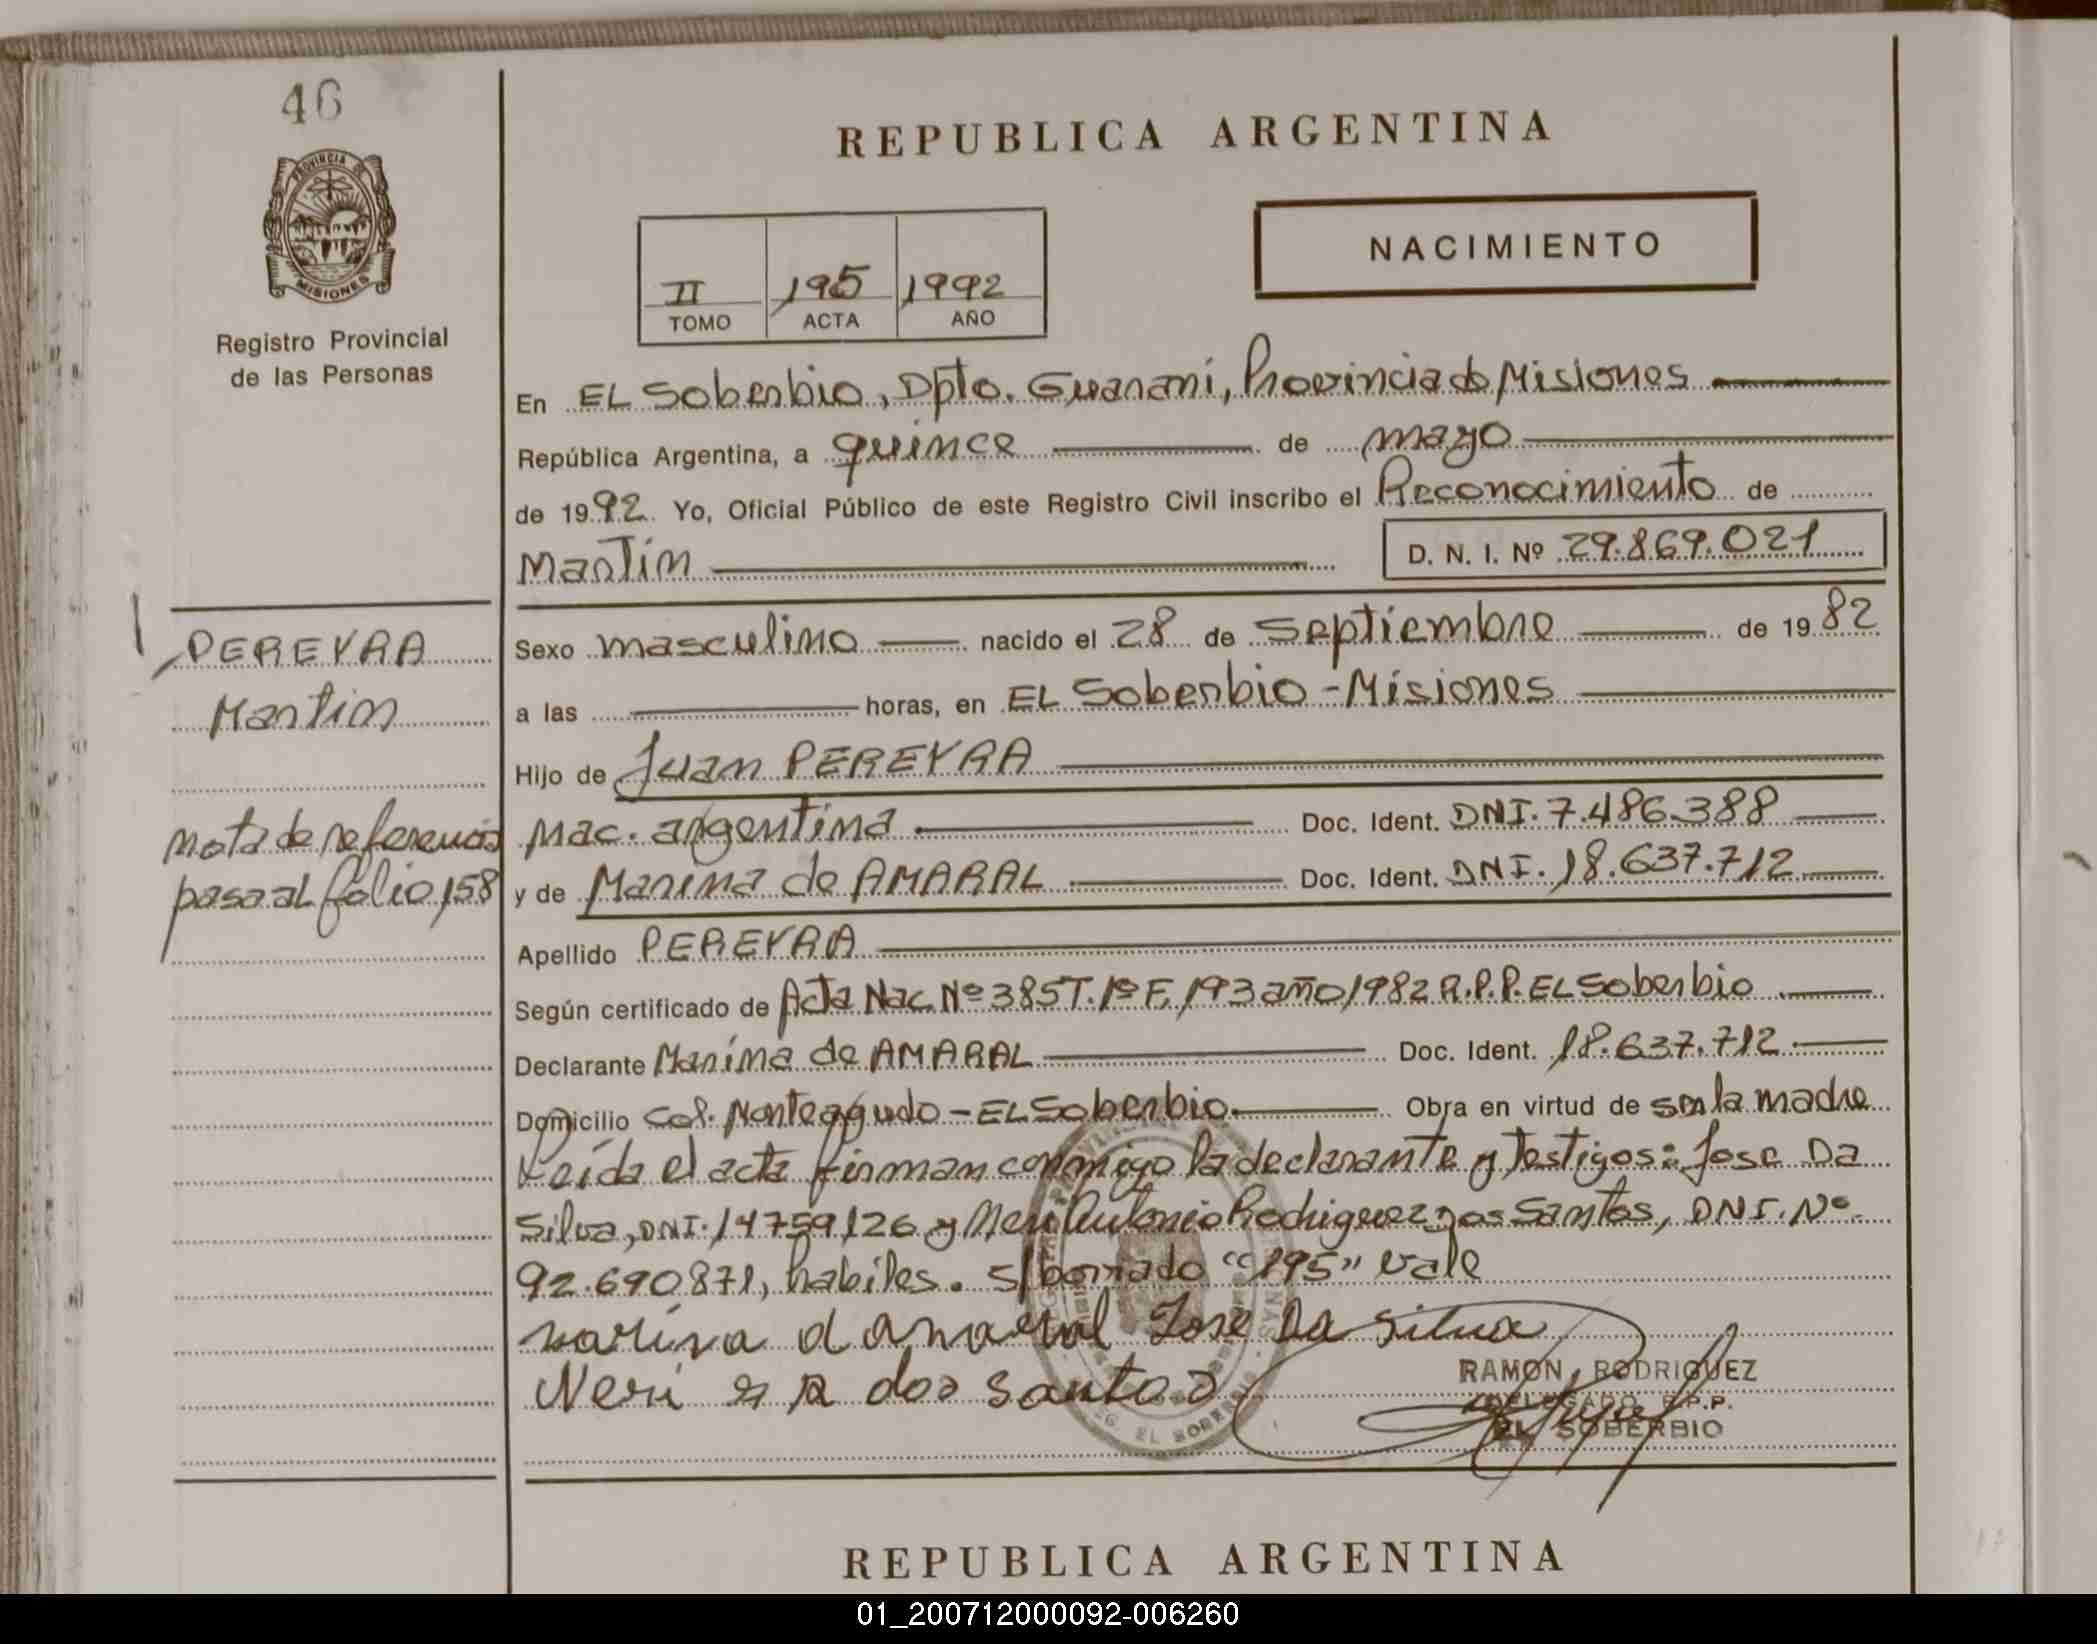 46
REPUBLICA ARGENTINA
PROVINCIA DE
MISIONES
Registro Provincial
de las Personas
NACIMIENTO
II 195 1992
TOMO ACTA AÑO
En EL Soberbio, Dpto. Guaraní, Provincia de Misiones
República Argentina, a quince de mayo
de 1992 Yo, Oficial Público de este Registro Civil inscribo el Reconocimiento de
Martín
D. N. I. Nº 29.869.021
PEREYRA
Martin
Sexo masculino nacido el 28 de Septiembre de 1982
a las horas, en EL Soberbio - Misiones
Hijo de Juan PEREYRA
nota de referencia
pasa al folio 158
Nac. argentina Doc. Ident. DNI. 7.486.388
y de Marina de AMARAL Doc. Ident. DNI. 18.637.712
Apellido PEREYRA
Según certificado de Acta Nac. Nº 385 T. 1º F. 193 año 1982 R.P.P. EL Soberbio
Declarante Marína de AMARAL Doc. Ident. 18.637.712
Domicilio Col. Monteagudo - EL Soberbio Obra en virtud de ser la madre
Leída el acta firman conmigo la declarante y testigos: Jose Da
Silva, DNI. 14759126 y Neri Antonio Rodriguez dos Santos, DNI. Nº
92.690871, habiles. S/borrado "195" vale
marina d amaral Jose Da Silva
Neri dos santos
RAMON RODRIGUEZ
DELEGADO R.P.P.
EL SOBERBIO
EL SOBERBIO
REPUBLICA ARGENTINA
01_200712000092-006260